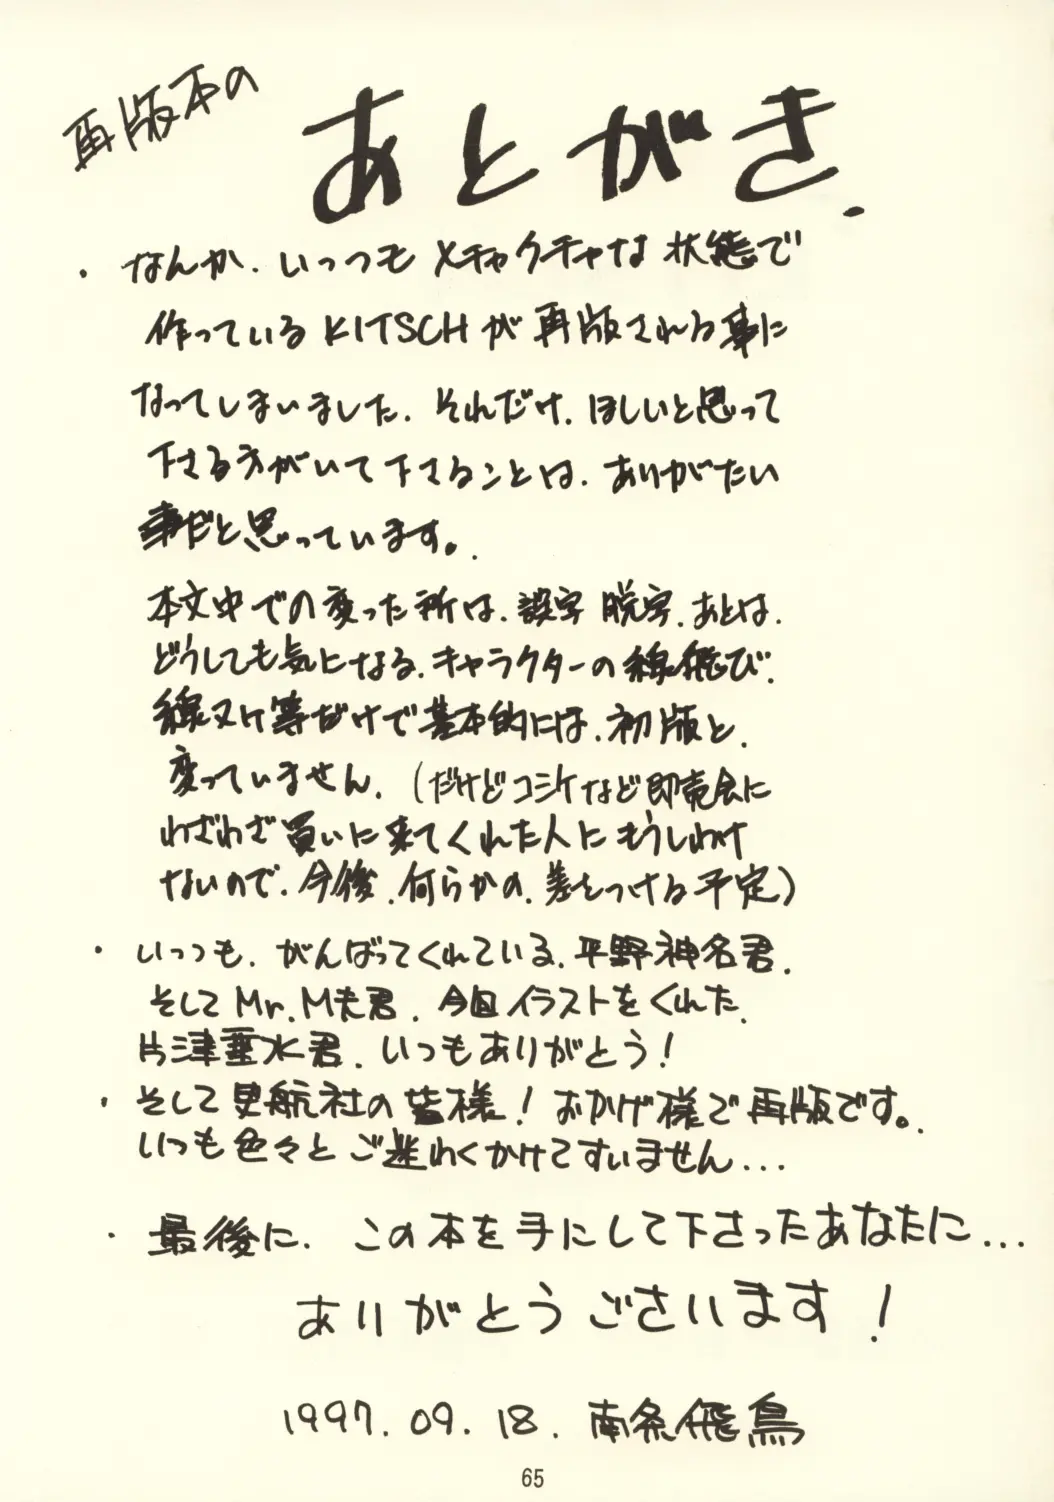 再版本の
あとがき.
・なんか、いっつもメチャクチャな状態で
作っているKITSCHが再版される事に
なってしまいました。それだけ、ほしいと思って
下さる方がいて下さることは、ありがたい
事だと思っています。
本文中での変った所は、誤字脱字、あとは、
どうしても気になる、キャラクターの線飛び、
線ヌケ等だけで基本的には、初版と、
変っていません。(だけどコミケなど即売会に
わざわざ買いに来てくれた人にもうしわけ
ないので、今後、何らかの、差をつける予定)
・いっつも、がんばってくれている、平野神名君、
そしてMr.M夫君、今回イラストをくれた、
片津垂水君、いつもありがとう!
・そして 航社の皆様!おかげ様で再版です。
いつも色々とご迷わくかけてすいません...
・最後に、この本を手にして下さったあなたに...
ありがとうございます!
1997.09.18. 南条飛鳥
65